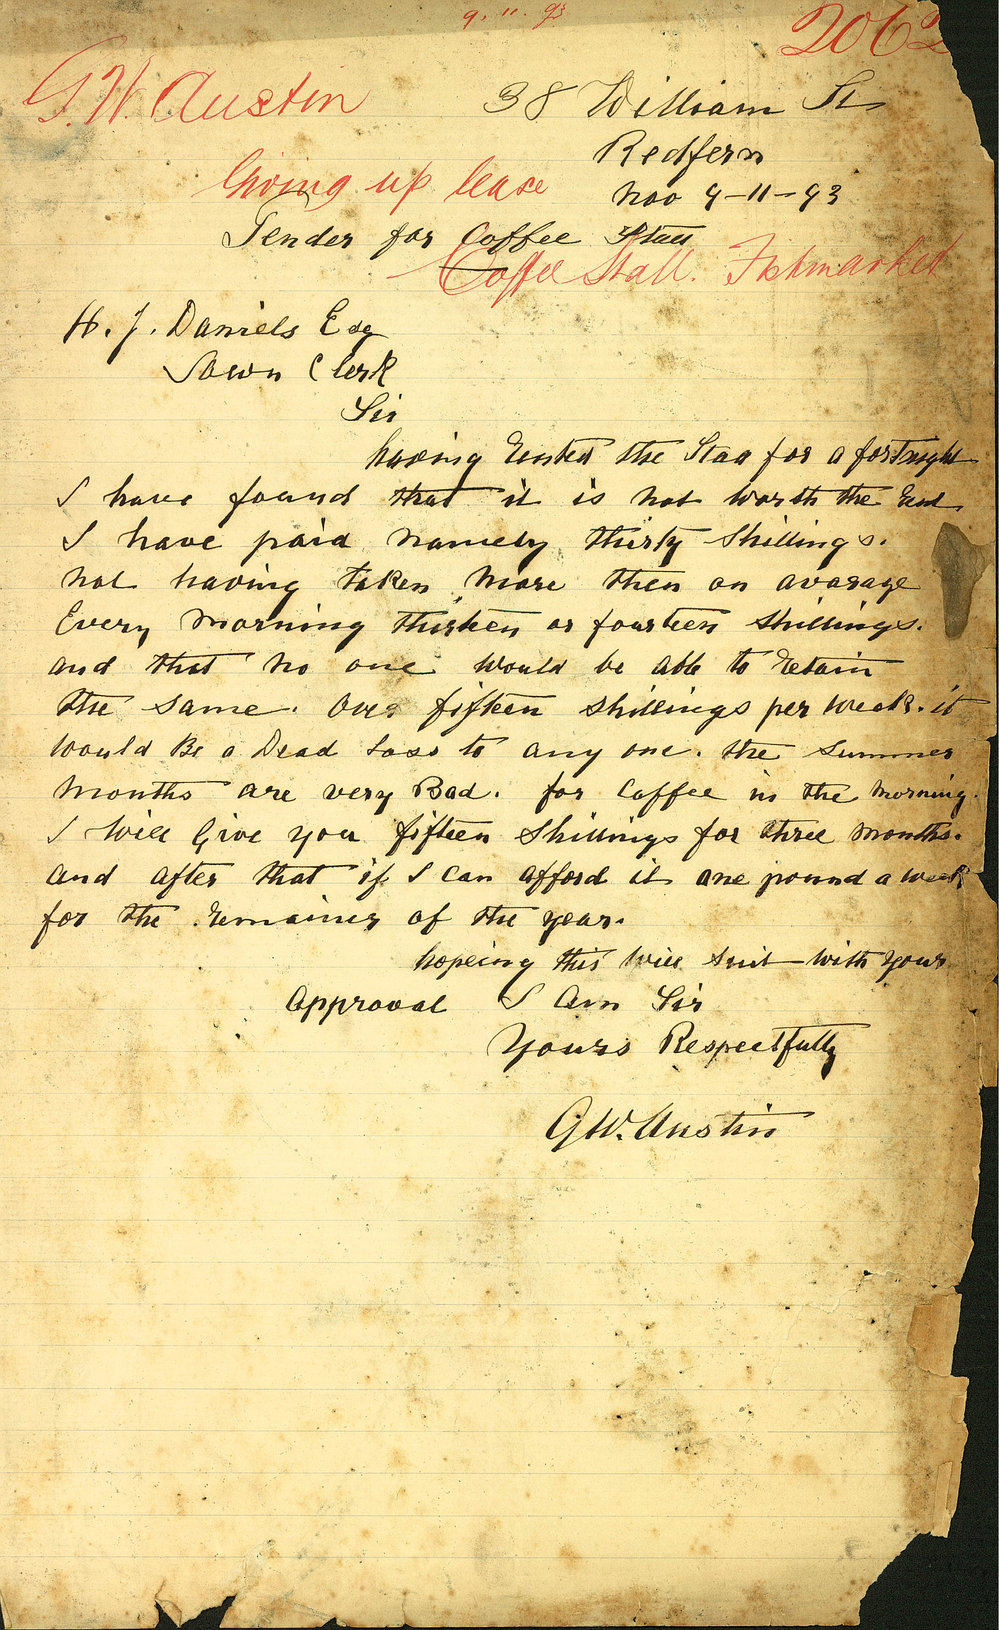 9. 11. 93
2062
G. W. Austin
38 William St
Redfern
Giving up lease
Nov 9-11-93
Tender for Coffee Stall
Coffee Stall. Fishmarket
H. J. Daniels Esq
Town Clerk
Sir
having Rented the Staa for a fortnight
I have found that it is not worth the Rent
I have paid namely thirty Shillings.
not having taken more then on avarage
Every morning thirteen or fourteen shillings.
and that no one would be able to Retain
the same. Over fifteen shillings per week. it
would Be a Dead Loss to any one. the summer
months are very Bad. for Coffee in the morning.
I will Give you fifteen shillings for three months.
and after that if I can afford it one pound a week
for the Remainer of the year.
hopeing this will suit with your
Approval I Am Sir
Yours Respectfully
G.W. Austin